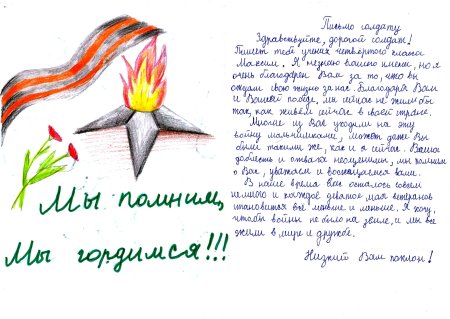 Мы помним,
Мы гордимся!!!
Письмо солдату
Здравствуйте, дорогой солдат!
Пишет тебе ученик четвёртого класса
Максим. Я не знаю вашего имени, но я
очень благодарен Вам за то, что вы
отдали свою жизнь за нас. Благодаря Вам
и Вашей победе, мы сейчас не
так, как живём сейчас в своей стране.
Многие из Вас уходили на эту
войну мальчишками, может даже Вы
были такими же, как и я сейчас. Ваша
доблесть и отвага неоценимы, мы помним
о Вас, уважаем и восхищаемся вами.
В наше время Вас осталось совсем
немного и каждое девятое мая ветеранов
становится все меньше и меньше. Я хочу,
чтобы войны не было на земле, и мы все
жили в мире и дружбе.
Низкий Вам поклон!